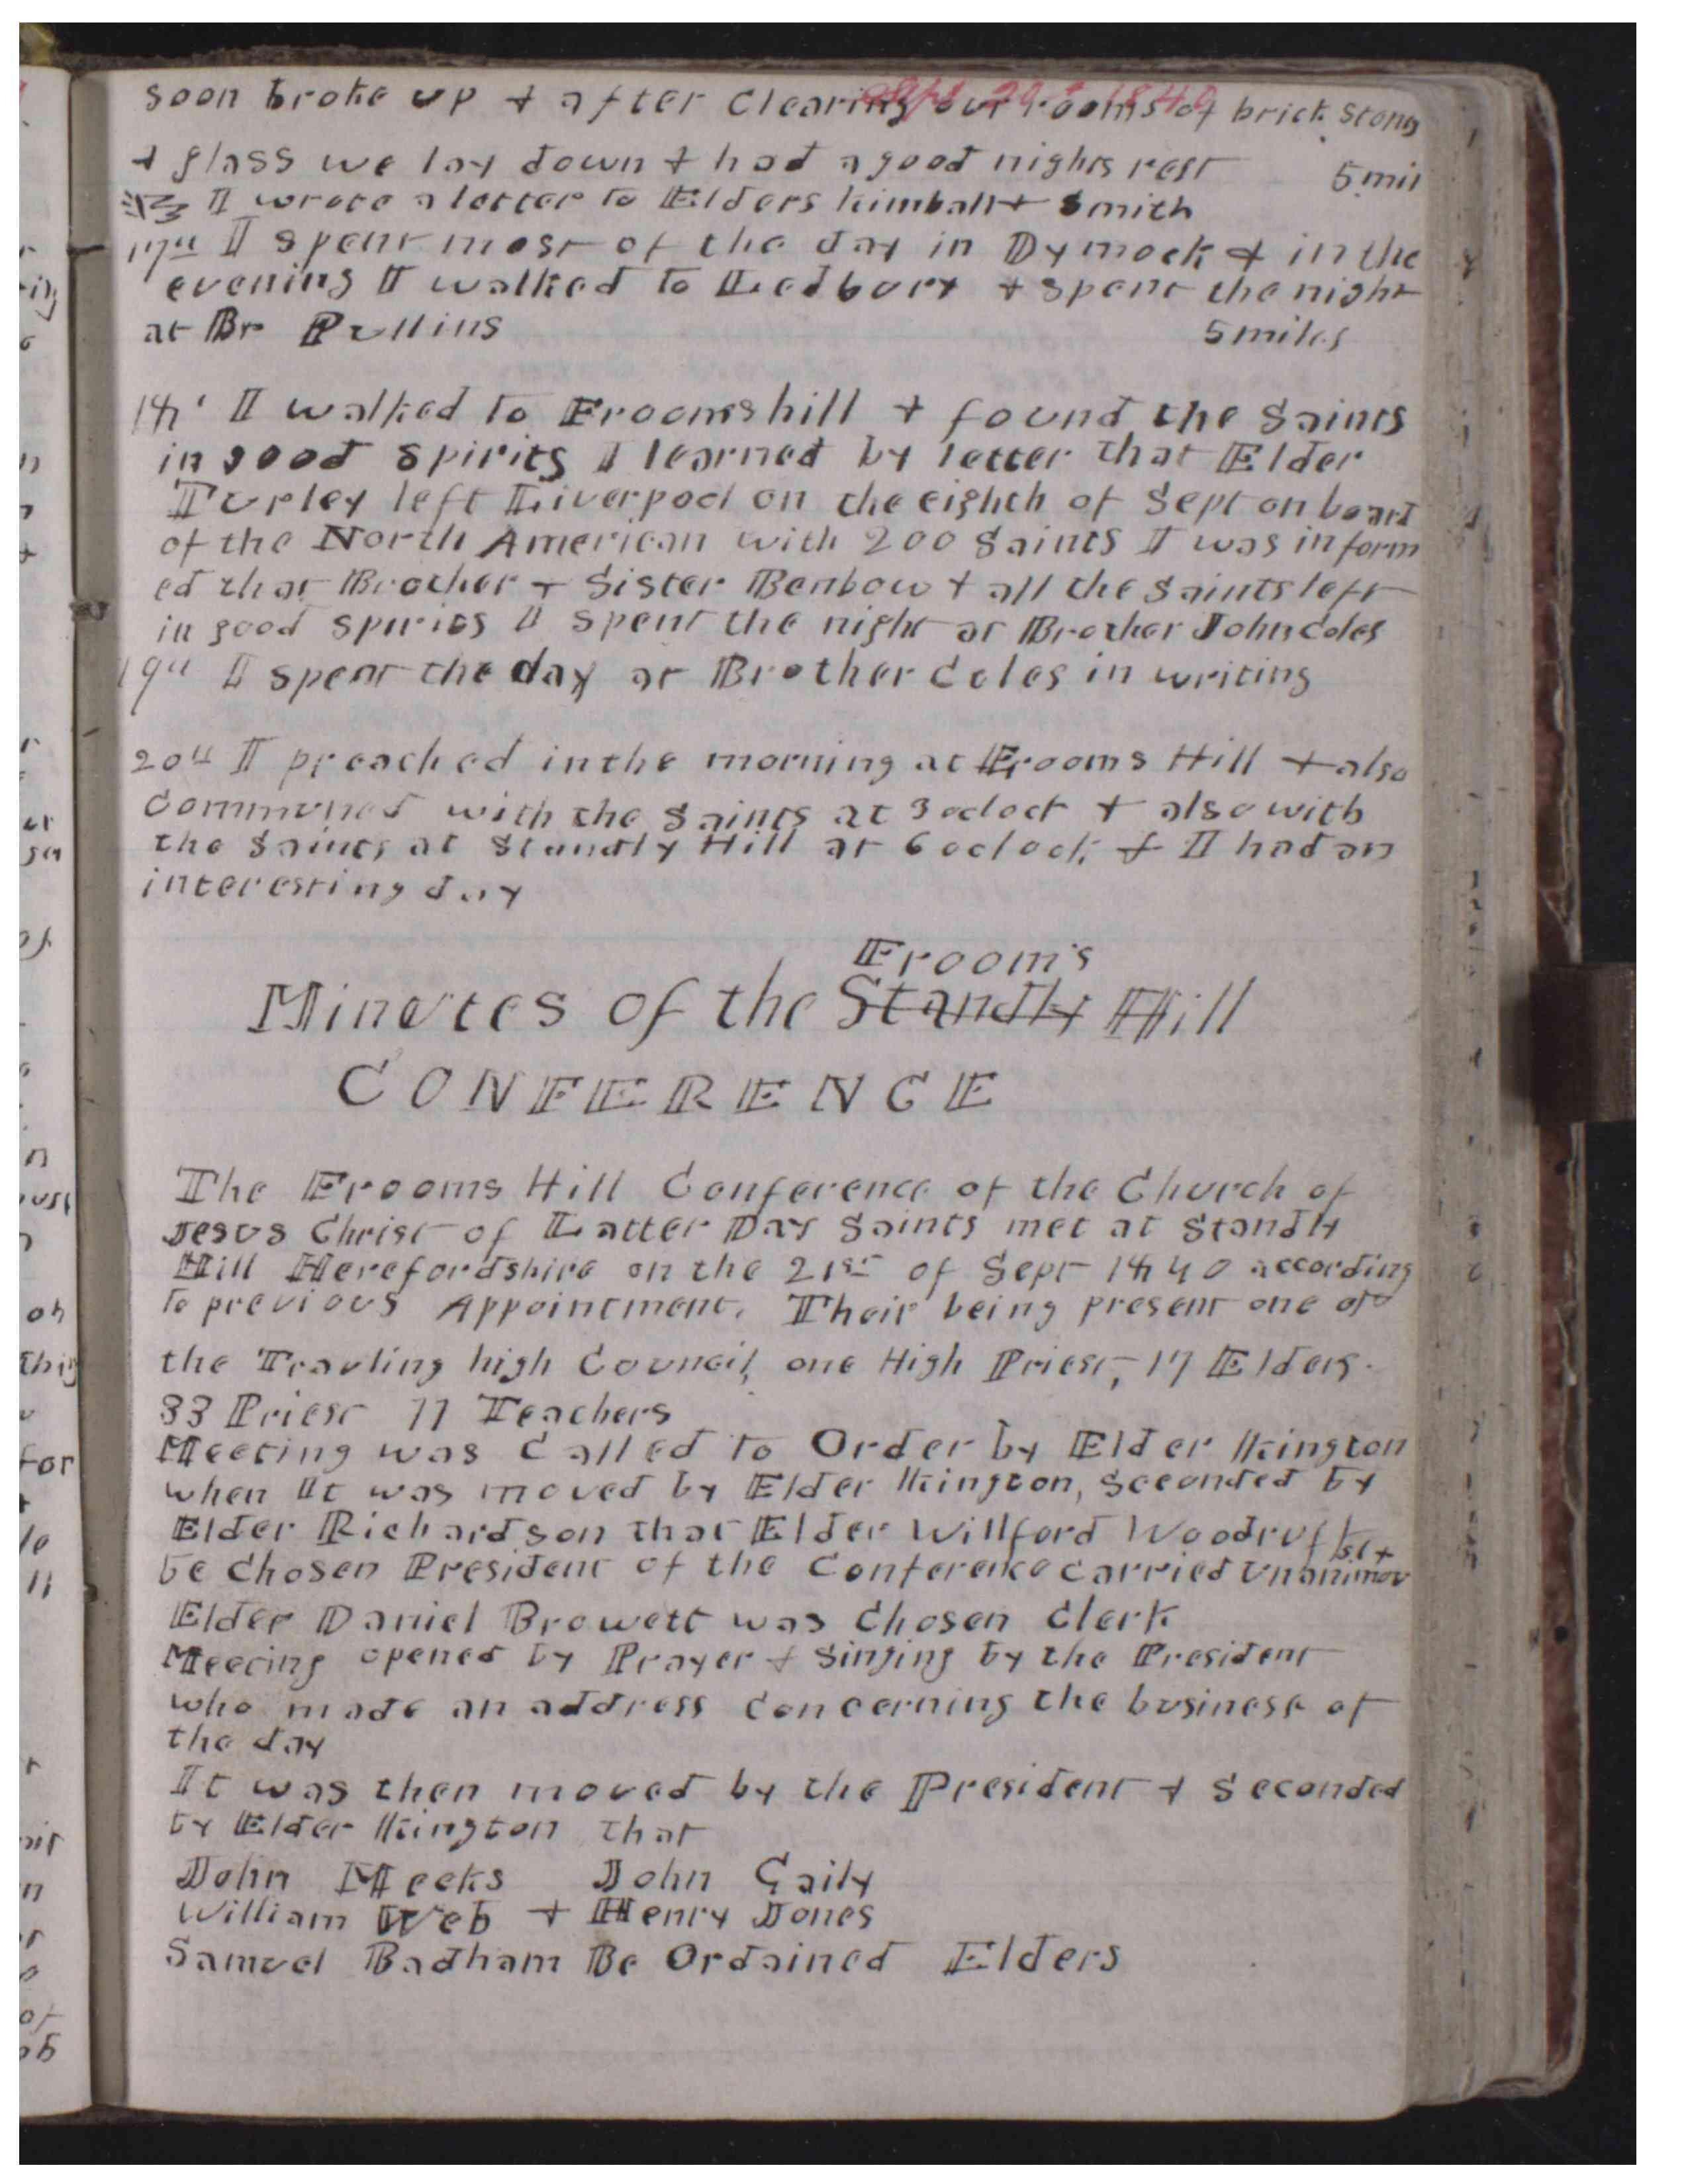 Sept 20th 1840
soon broke up & after Clearing our rooms of brick stons
& glass we lay down & had a good nights rest 5 mil
I wrote a letter to Elders Kimball & Smith
17th I spent most of the day in Dymock & in the
evening I walked to Ledbury & spent the night
at Br Pullins 5 miles
18' I walked to Frooms hill & found the Saints
in good spirits I learned by letter that Elder
Turley left Liverpool on the eighth of Sept on board
of the North American with 200 Saints I was inform
ed that Brother & Sister Benbow & all the Saints left
in good spirits I spent the night at Brother John Coles
19th I spent the day at Brother Coles in writing
20th I preached in the morning at Frooms Hill & also
Communed with the Saints at 3 oclock & also with
the Saints at Standly Hill at 6 oclock & I had an
interesting day
Froom's
Minutes of the Standly Hill
CONFERENCE
The Frooms Hill Conference of the Church of
Jesus Christ of Latter Day Saints met at Standly
Hill Herefordshire on the 21st of Sept 1840 according
to previous Appointment. Their being present one of
the Travling high Council, one High Priest, 17 Elders.
33 Priest 11 Teachers
Meeting was Called to Order by Elder Kington
when It was moved by Elder Kington, seconded by
Elder Richardson that Elder Willford Woodruff
be Chosen President of the Conference carried unanimousl+
Elder Daniel Browett was Chosen Clerk
Meeting opened by Prayer & Singing by the President
who made an address concerning the business of
the day
It was then moved by the President & seconded
by Elder Kington that
John Meeks John Gaily
William Web & Henry Jones
Samuel Badham Be Ordained Elders